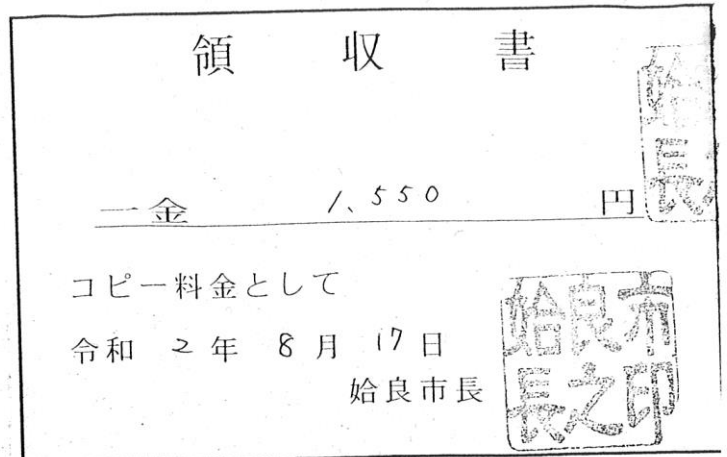 領 収 書
一金 1、550 円
コピー料金として
令和 2 年 8 月 17 日
姶良市長
姶良市
長之印
姶
長